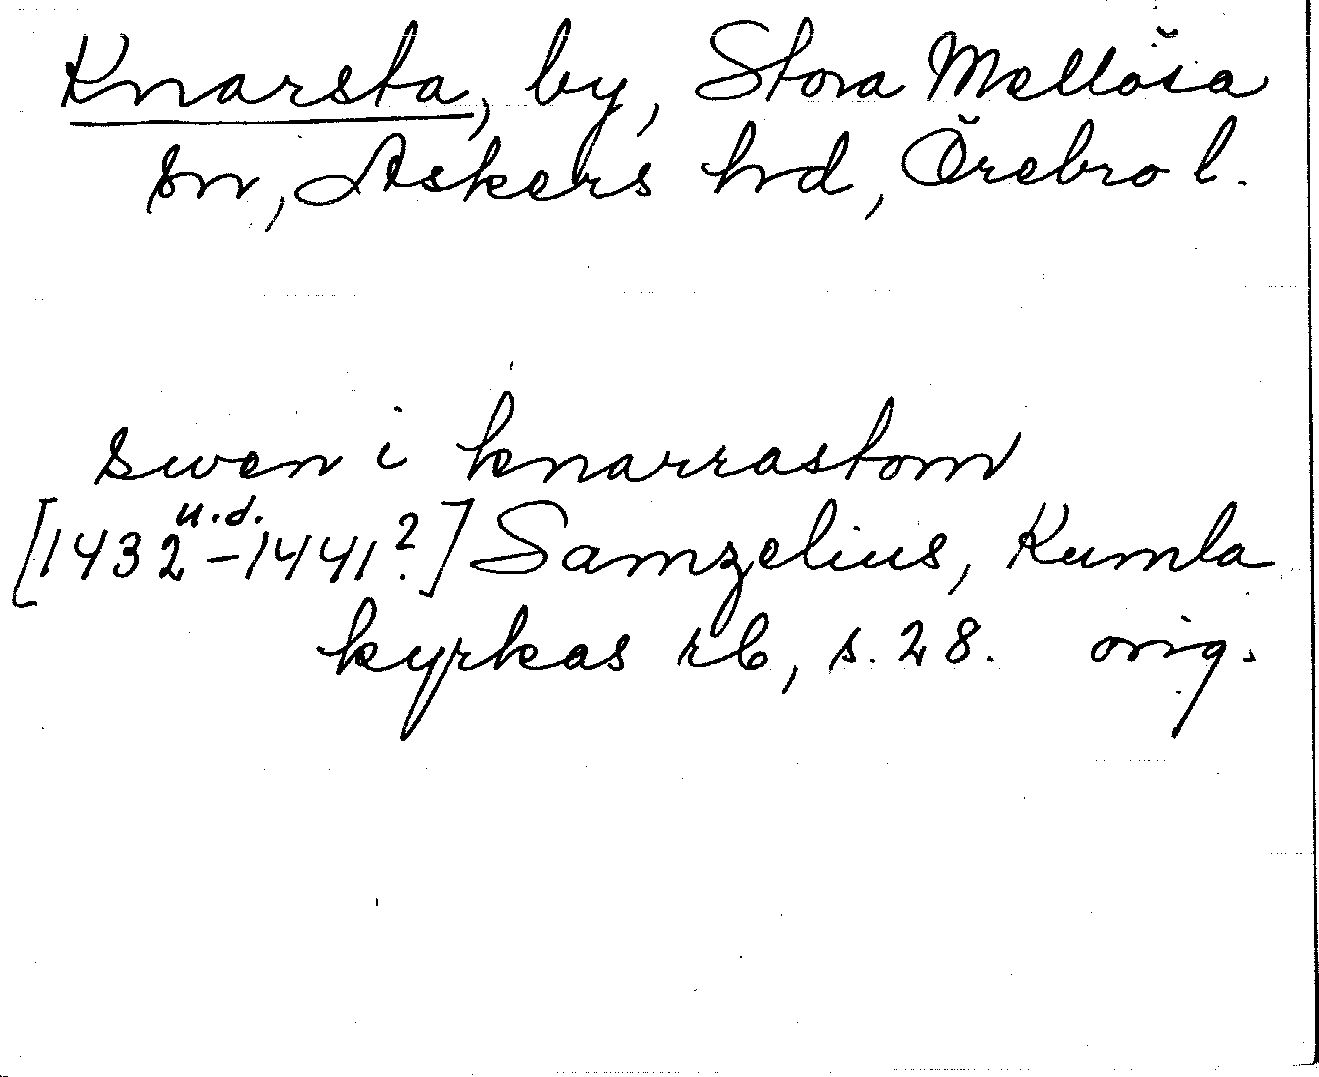 Knarsta, by, Stora Mellösa
sn, Askers hd, Örebro l.
swen i knarrastom
[1432 u.d. - 1441?] Samzelius, Kumla
kyrkas rb, s. 28. orig.